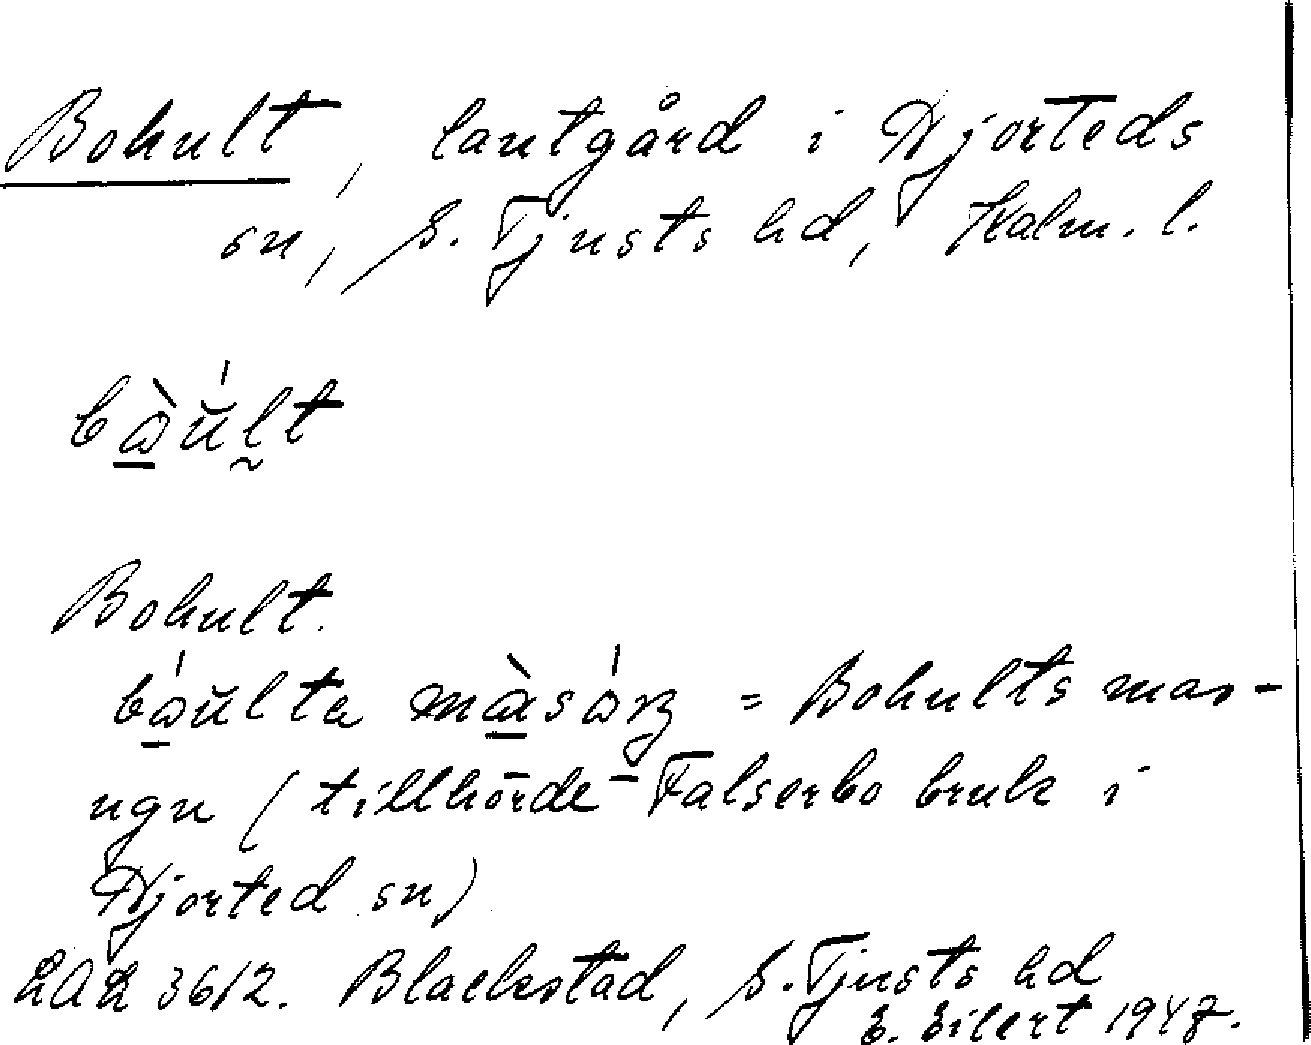 Bohult, lantgård i Hjorteds
sn, S. Tjusts hd, Kalm. l.
bὼu̇lt
Bohult.
båŭlta màsòrz = Bohults mas-
ugn (tillhörde Falserbo bruk i
Hjorted sn)
3612. Blackstad, S. Tjusts hd
E. Eilert 1947.